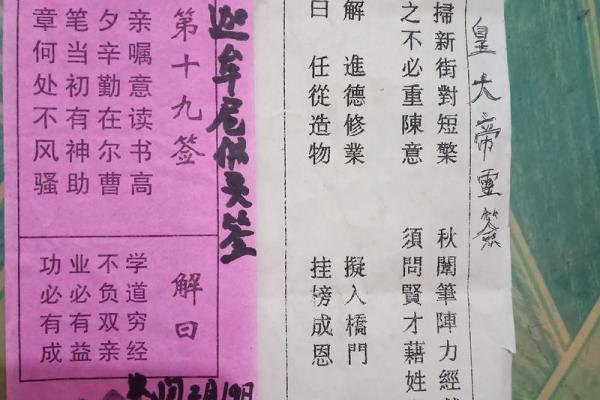 皇大帝靈簽
掃新街對短檠 秋闈筆陣力經
之不必重陳意 須問賢才藉姓
解 進德修業 擬入橋門
曰 任從造物 挂榜成恩
迦牟尼佛灵签
第十九签
亲嘱意读书高
夕辛勤在尔曹
笔当初有神助
章何处不风骚
解曰
学道穷经
不负双亲
业必有益
功必有成
月19日